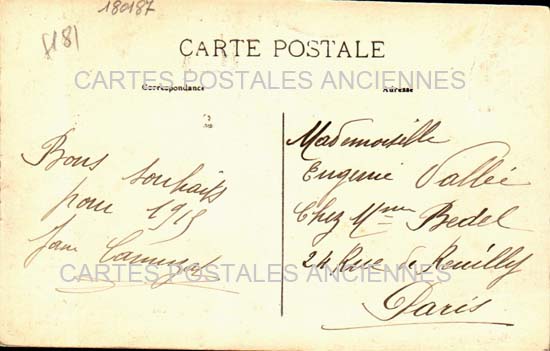 180187
8181
CARTE POSTALE
CARTES POSTALES ANCIENNES
Correspondance
Adresse
Bons souhaits
pour 1915
Mademoiselle
Eugénie Vallée
Chez Mme Bedel
24 Rue de Reuilly
Paris
CARTES POSTALES ANCIENNES